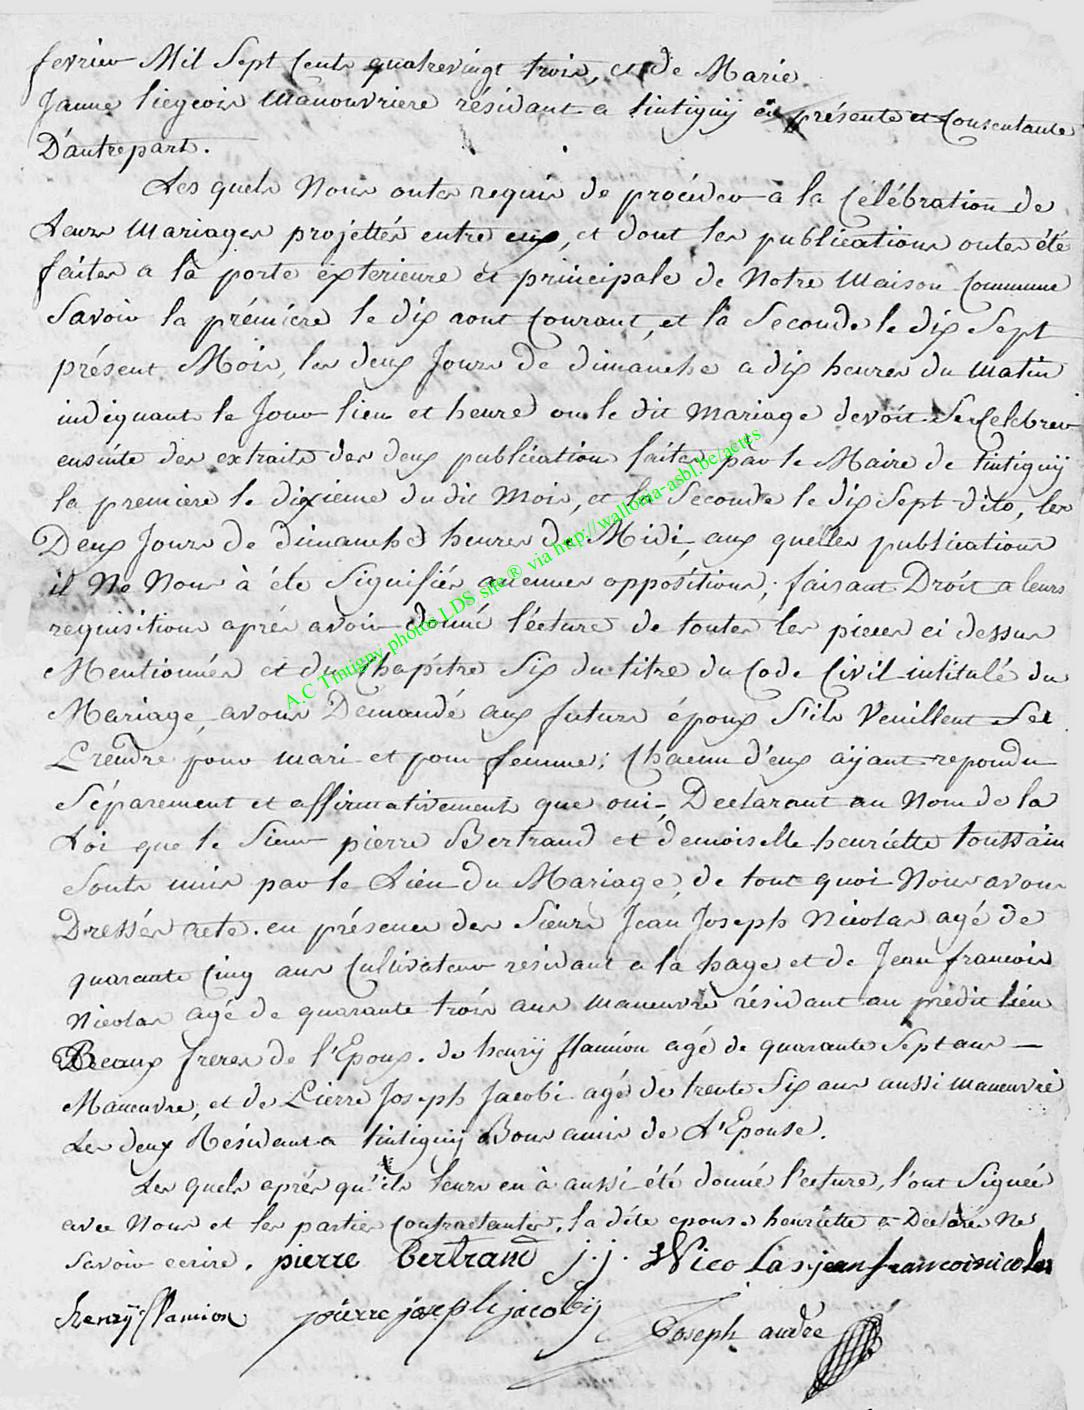 fevrier Mil Sept Cents quatrevingt trois, et de Marie
Jeanne liegeois Manouvriere résidant a tintignÿ ici présente et Consentante
D'autrepart.
Les quels Nous ontes requis de procéder a la Célébration de
Leurs Mariages projettés entre eux, et dont les publications ontes été
faites a la porte exterieure et principale de Notre Maison Commune
Savoir la prémiére le dix aout Courant, et la Seconde le dix Sept
présent Mois, les deux Jours de dimanche a dix heures du Matin
indiquant le Jour lieu et heure ou le dit Mariage devoit Se Celebrer
ensuite des extraits des deux publication faites par le Maire de tintignÿ
la premiere le dixieme du dit Mois, et la Seconde le dix Sept dito, les
Deux Jours de dimanche heures de Midi, aux quelles publications
il Ne Nous à été Signifiés aucunes oppositions; faisant Droit a leurs
requisitions aprés avoir donné l'écture de toutes les pieces ci dessus
Mentionnés et du Chapître Six du titre du Code Civil intitulé du
Mariage, avons Demandé aux futurs époux S'ils Veuillent Se
Prendre pour mari et pour femme; Chacun d'eux aÿant repondu
Séparement et affirmativement que oui, Declarant au Nom de la
Loi que le Sieur pierre Bertrand et demoiselle henriétte toussain
Sonts unis par le Lien du Mariage, de tout quoi Nous avons
Dressés acte. en présence des Sieurs Jean Joseph Nicolas agé de
quarante Cinq ans Cultivateur residant a la hage et de Jean francois
Nicolas agé de quarante trois ans maneuvre résidant au prédit lieu
Beaux freres de l'Epoux. de henrÿ flamion agé de quarante Sept ans —
Maneuvre, et de Pierre Joseph Jacobi agé de trente Six ans aussi maneuvre
Les deux Résidant a tintignÿ Bons amis de L'Epouse.
Les quels aprés qu'ils leurs en à aussi été donné l'ecture, l'ont Signée
avec Nous et les parties Contractantes, la dite epouse henriette a Declarée Ne
Savoir ecrire. pierre Bertrand j. j. Nicolas jean francois nicolas
henrÿ flamion pierre joseph jacobÿ Joseph andré
A.C Tintigny photos LDS site® via http://wallonia-asbl.be/actes